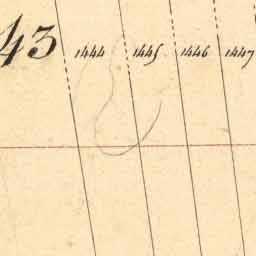 43 1444 1445 1446 1447